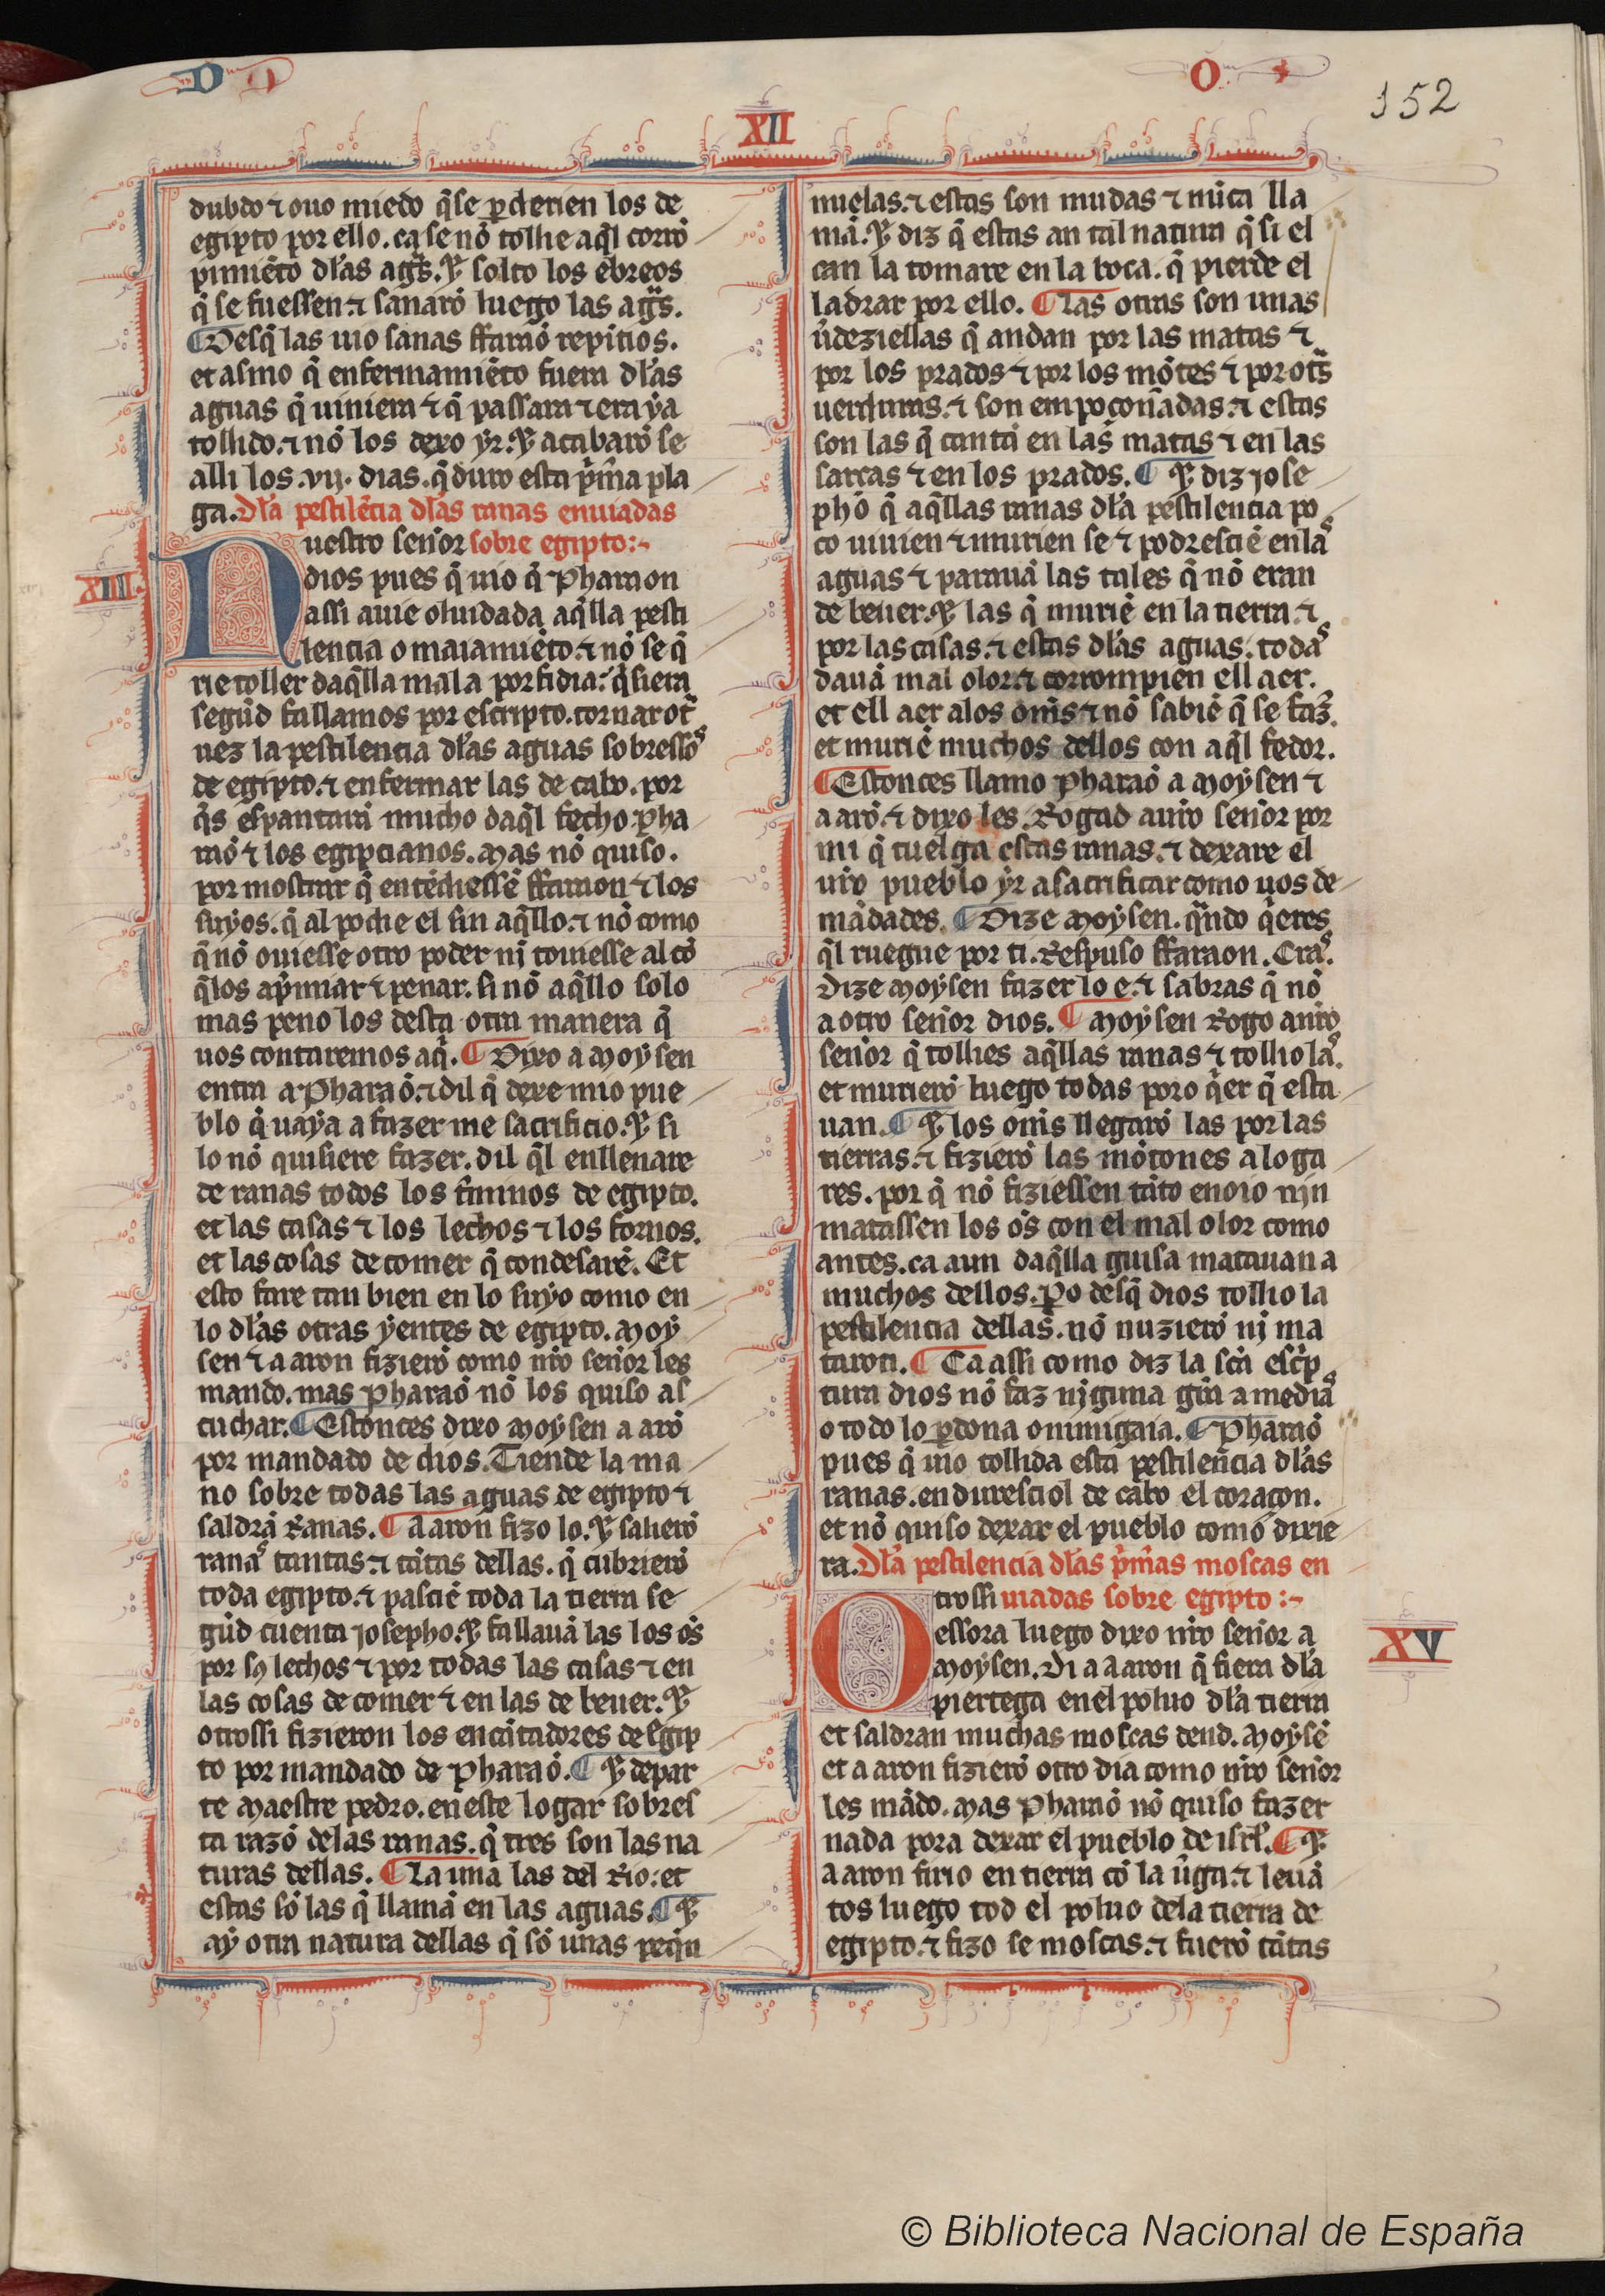 D D
O
152
XII
dubdo ⁊ ouo miedo q̃ se ꝑderien los de
egipto por ello. ca se nõ tolhe aq̃l corrõ
pimiẽto dl̃as ag̃s. ⁊ solto los ebreos
q̃ se fuessen. ⁊ sanarõ luego las ag̃s.
¶ Desq̃ las uio sanas ffaraõ repitios.
et asmo q̃ enfermamiẽto fuera dl̃as
aguas q̃ uiniera ⁊ q̃ passara ⁊ era ẏa
tollido. ⁊ nõ los dexo ẏr. ⁊ acabarõ se
alli los .vij. dias. q̃ duro esta p̃m̃a pla
ga. Dl̃a pestilẽcia dl̃as ranas enuiadas
uestro sennor sobre egipto:~
XIII
N
dios pues q̃ uio q̃ Pharaon
assi auie oluidada aq̃lla pesti
lencia o maiamiẽto. ⁊ nõ se q̃
rie toller daq̃lla mala porfidia. q̃siera
segũd fallamos por escripto. tornar ot̃
uez la pestilencia dl̃as aguas sobressos
de egipto. ⁊ enfermar las de cabo. por
q̃s espantarã mucho daq̃l fecho pha
raõ ⁊ los egipcianos. Mas nõ quiso.
por mostrar q̃ entẽdiessẽ ffaraon ⁊ los
suyos. q̃ al podie el sin aq̃llo. ⁊ nõ como
q̃ nõ ouiesse otro poder nj touiesse al cõ
q̃ los ap̃miar ⁊ penar. si nõ aq̃llo solo
mas peno los desta otra manera q̃
uos contaremos aq̃. ¶ Dixo a Moẏsen
entra a Pharaõ. ⁊ dil q̃ dexe mio pue
blo q̃ uaẏa a fazer me sacrificio. ⁊ si
lo nõ quisiere fazer. dil q̃l enllenare
de ranas todos los t̃minos de egipto.
et las casas ⁊ los lechos ⁊ los fornos.
et las cosas de comer q̃ condesarẽ. Et
esto fare tan bien en lo suẏo como en
lo dl̃as otras ẏentes de egipto. Moẏ
sen ⁊ aaron fizierõ como nr̃o sennor les
mando. mas Pharaõ nõ los quiso as
cuchar. ¶ Estonces dixo Moẏsen a arõ
por mandado de dios. Tiende la ma
no sobre todas las aguas de egipto ⁊
saldrã Ranas. ¶ Aaron fizo lo. ⁊ salierõ
ranas tantas. ⁊ tãtas dellas. q̃ cubrierõ
toda egipto. ⁊ pasciẽ toda la tierra se
gũd cuenta josepho. ⁊ fallauã las los oẽs
por sꝯ lechos ⁊ por todas las casas ⁊ en
las cosas de comer ⁊ en las de beuer. ⁊
otrossi fizieron los encãtadores de Egip
to por mandado de Pharaõ. ¶ ⁊ depar
te Maestre pedro. en este logar sobres
ta razõ de las ranas. q̃ tres son las na
turas dellas. ¶ La una las del Rio: et
estas sõ las q̃ llamã en las aguas. ¶ ⁊
aẏ otra natura dellas q̃ sõ unas peq̃n
nuelas. ⁊ estas son mudas ⁊ nũca lla
mã. ⁊ diz q̃ estas an tal natura q̃ si el
can la tomare en la boca. q̃ pierde el
ladrar por ello. ¶ Las otras son unas
ũdeziellas q̃ andan por las matas ⁊
por los prados ⁊ por los mõtes ⁊ por ot̃s
uerduras. ⁊ son empoçonnadas. ⁊ estas
son las q̃ cantã en las matas ⁊ en las
sarças ⁊ en los prados. ¶ ⁊ diz jose
phõ q̃ aq̃llas ranas dl̃a pestilencia po
co uiuien ⁊ murien se ⁊ podresciẽ en las
aguas ⁊ parauã las tales q̃ nõ eran
de beuer. ⁊ las q̃ muriẽ en la tierra ⁊
por las casas. ⁊ estas dl̃as aguas. todas
dauã mal olor. ⁊ corrompien ell aer.
et ell aer a los om̃s ⁊ nõ sabiẽ q̃ se faz̃.
et muriẽ muchos dellos con aq̃l fedor.
¶ Estonces llamo Pharaõ a Moẏsen ⁊
a arõ. ⁊ dixo les. Rogad a ur̃o sennor por
mi q̃ tuelga estas ranas. ⁊ dexare el
ur̃o pueblo ẏr a sacrificar como uos de
mãdades. ¶ Dize Moẏsen. q̃ndo q̃eres
q̃l ruegue por ti. Respuso ffaraon. Cras.
Dize Moẏsen fazer lo e. ⁊ sabras q̃ nõ
a otro sennor dios. ¶ Moẏsen Rogo a nr̃o
sennor q̃ tollies aq̃llas ranas ⁊ tollio las.
et murierõ luego todas poro q̃er q̃ esta
uan. ¶ ⁊ los om̃s llegarõ las por las
tierras. ⁊ fizierõ las mõtones a loga
res. por q̃ nõ fiziessen tãto enoio nin
matassen los oẽs con el mal olor como
antes. ca aun daq̃lla guisa matauan a
muchos dellos. ꝑo desq̃ dios tollio la
pestilencia dellas. nõ nuzierõ nj ma
taron. ¶ Ca assi como diz la sc̃a esc̃p
tura dios nõ faz njguna gr̃a a medias
o todo lo ꝑdona o nimigaia. ¶ Pharaõ
pues q̃ uio tollida esta pestilencia dl̃as
ranas. enduresciol de cabo el coraçon.
et nõ quiso dexar el pueblo como dixie
ra. Dl̃a pestilencia dl̃as p̃m̃as moscas en
trossi uiadas sobre egipto :~
XV
O
essora luego dixo nr̃o sennor a
Moẏsen. Di a aaron q̃ fiera dl̃a
piertega en el poluo dl̃a tierra
et saldran muchas moscas dend. Moẏsẽ
et aaron fizierõ otro dia como nr̃o sennor
les mãdo. Mas Pharaõ nõ quiso fazer
nada pora dexar el pueblo de isrl̃. ¶ ⁊
aaron firio en tierra cõ la ũga. ⁊ leuã
tos luego tod el poluo de la tierra de
egipto. ⁊ fizo se moscas. ⁊ fuerõ tãtas
© Biblioteca Nacional de España